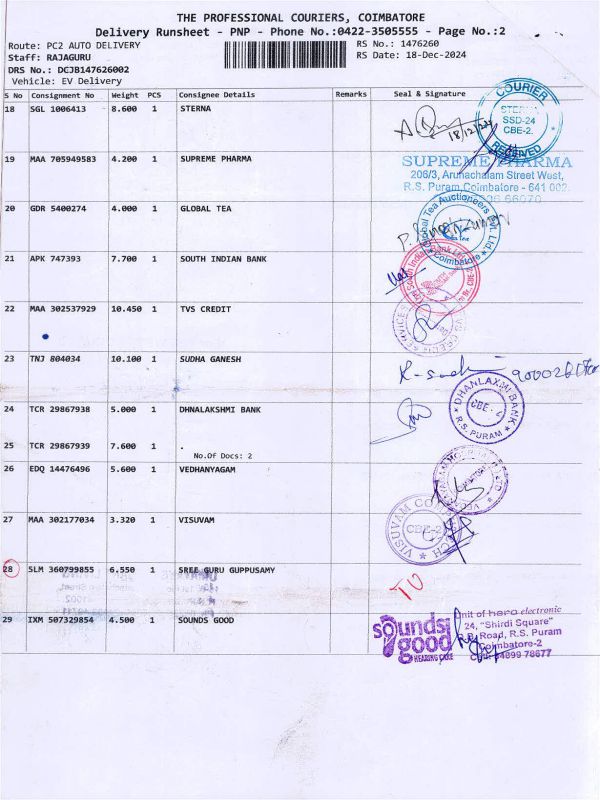 THE PROFESSIONAL COURIERS, COIMBATORE
Delivery Runsheet - PNP - Phone No.:0422-3505555 - Page No.:2
Route: PC2 AUTO DELIVERY
RS No.: 1476260
Staff: RAJAGURU
RS Date: 18-Dec-2024
DRS No.: DCJB147626002
Vehicle: EV Delivery
S No Consignment No Weight PCS Consignee Details Remarks Seal & Signature
18 SGL 1006413 8.600 1 STERNA
COURIER
SSD-24
CBE-2.
RECEIVED
18/12/24
19 MAA 705949583 4.200 1 SUPREME PHARMA
SUPREME PHARMA
206/3, Arunachalam Street West,
R.S. Puram, Coimbatore - 641 002.
20 GDR 5400274 4.000 1 GLOBAL TEA
Global Tea Auctioneers Pvt. Ltd.
Coimbatore
21 APK 747393 7.700 1 SOUTH INDIAN BANK
South Indian Bank
22 MAA 302537929 10.450 1 TVS CREDIT
SERVICES
23 TNJ 804034 10.100 1 SUDHA GANESH
24 TCR 29867938 5.000 1 DHNALAKSHMI BANK
DHANLAXMI BANK
CBE-2
R.S. PURAM
25 TCR 29867939 7.600 1 .
No.Of Docs: 2
26 EDQ 14476496 5.600 1 VEDHANYAGAM
27 MAA 302177034 3.320 1 VISUVAM
VISUVAM
CBE-2
28 SLM 360799855 6.550 1 SREE GURU GUPPUSAMY
29 IXM 507329854 4.500 1 SOUNDS GOOD
sounds good
HEARING CARE
Unit of hero electronic
24, "Shirdi Square"
Road, R.S. Puram
Coimbatore-2